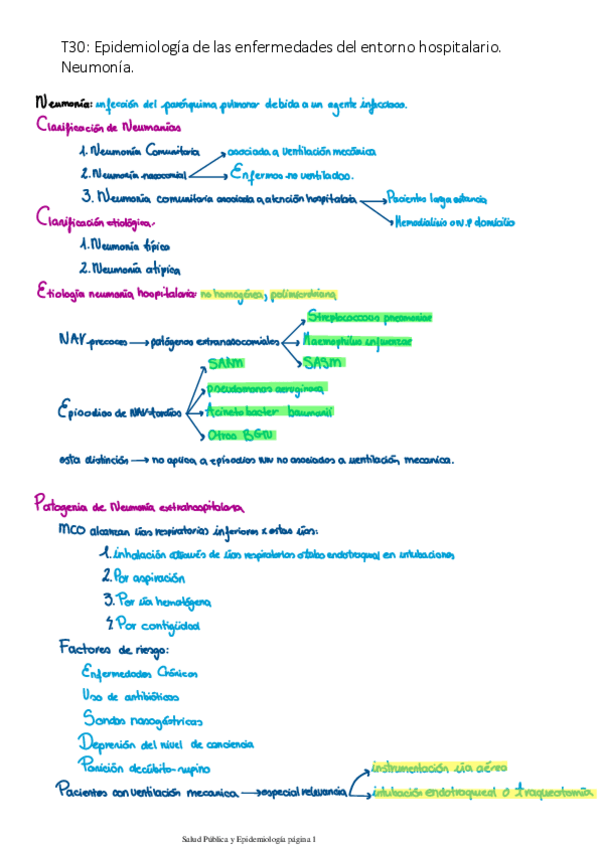 T30: Epidemiología de las enfermedades del entorno hospitalario.
Neumonía.
Neumonía: infección del parénquima pulmonar debida a un agente infeccioso.
Clasificación de Neumonías
1. Neumonía Comunitaria
asociada a ventilación mecánica
2. Neumonía nosocomial
Enfermos no ventilados.
3. Neumonía comunitaria asociada a atención hospitalaria
Pacientes larga estancia
Hemodiálisis o v.p domicilio
Clasificación etiológica.
1. Neumonía típica
2. Neumonía atípica
Etiología neumonía hospitalaria: no homogénea, polimicrobiana
Streptococcus pneumoniae
NAV precoces → patógenos extranosocomiales
Haemophilus influenzae
SASM
SARM
pseudomonas aeruginosa
Episodios de NAV tardíos
Acinetobacter baumanii
Otros BGN
esta distinción → no aplica a episodios NN no asociados a ventilación mecanica.
Patogenia de Neumonía extrahospitalaria
MCO alcanzan vías respiratorias inferiores x estas vías:
1. inhalación através de vías respiratorias o tubo endotraqueal en intubaciones
2. Por aspiración
3. Por vía hematógena
4. Por contigüidad
Factores de riesgo:
Enfermedades Crónicas
Uso de antibióticos
Sondas nasogástricas
Depresión del nivel de conciencia
Posición decúbito-supino
instrumentación vía aérea
Pacientes con ventilación mecanica → especial relevancia
intubación endotraqueal o traqueotomía
Salud Pública y Epidemiología página 1